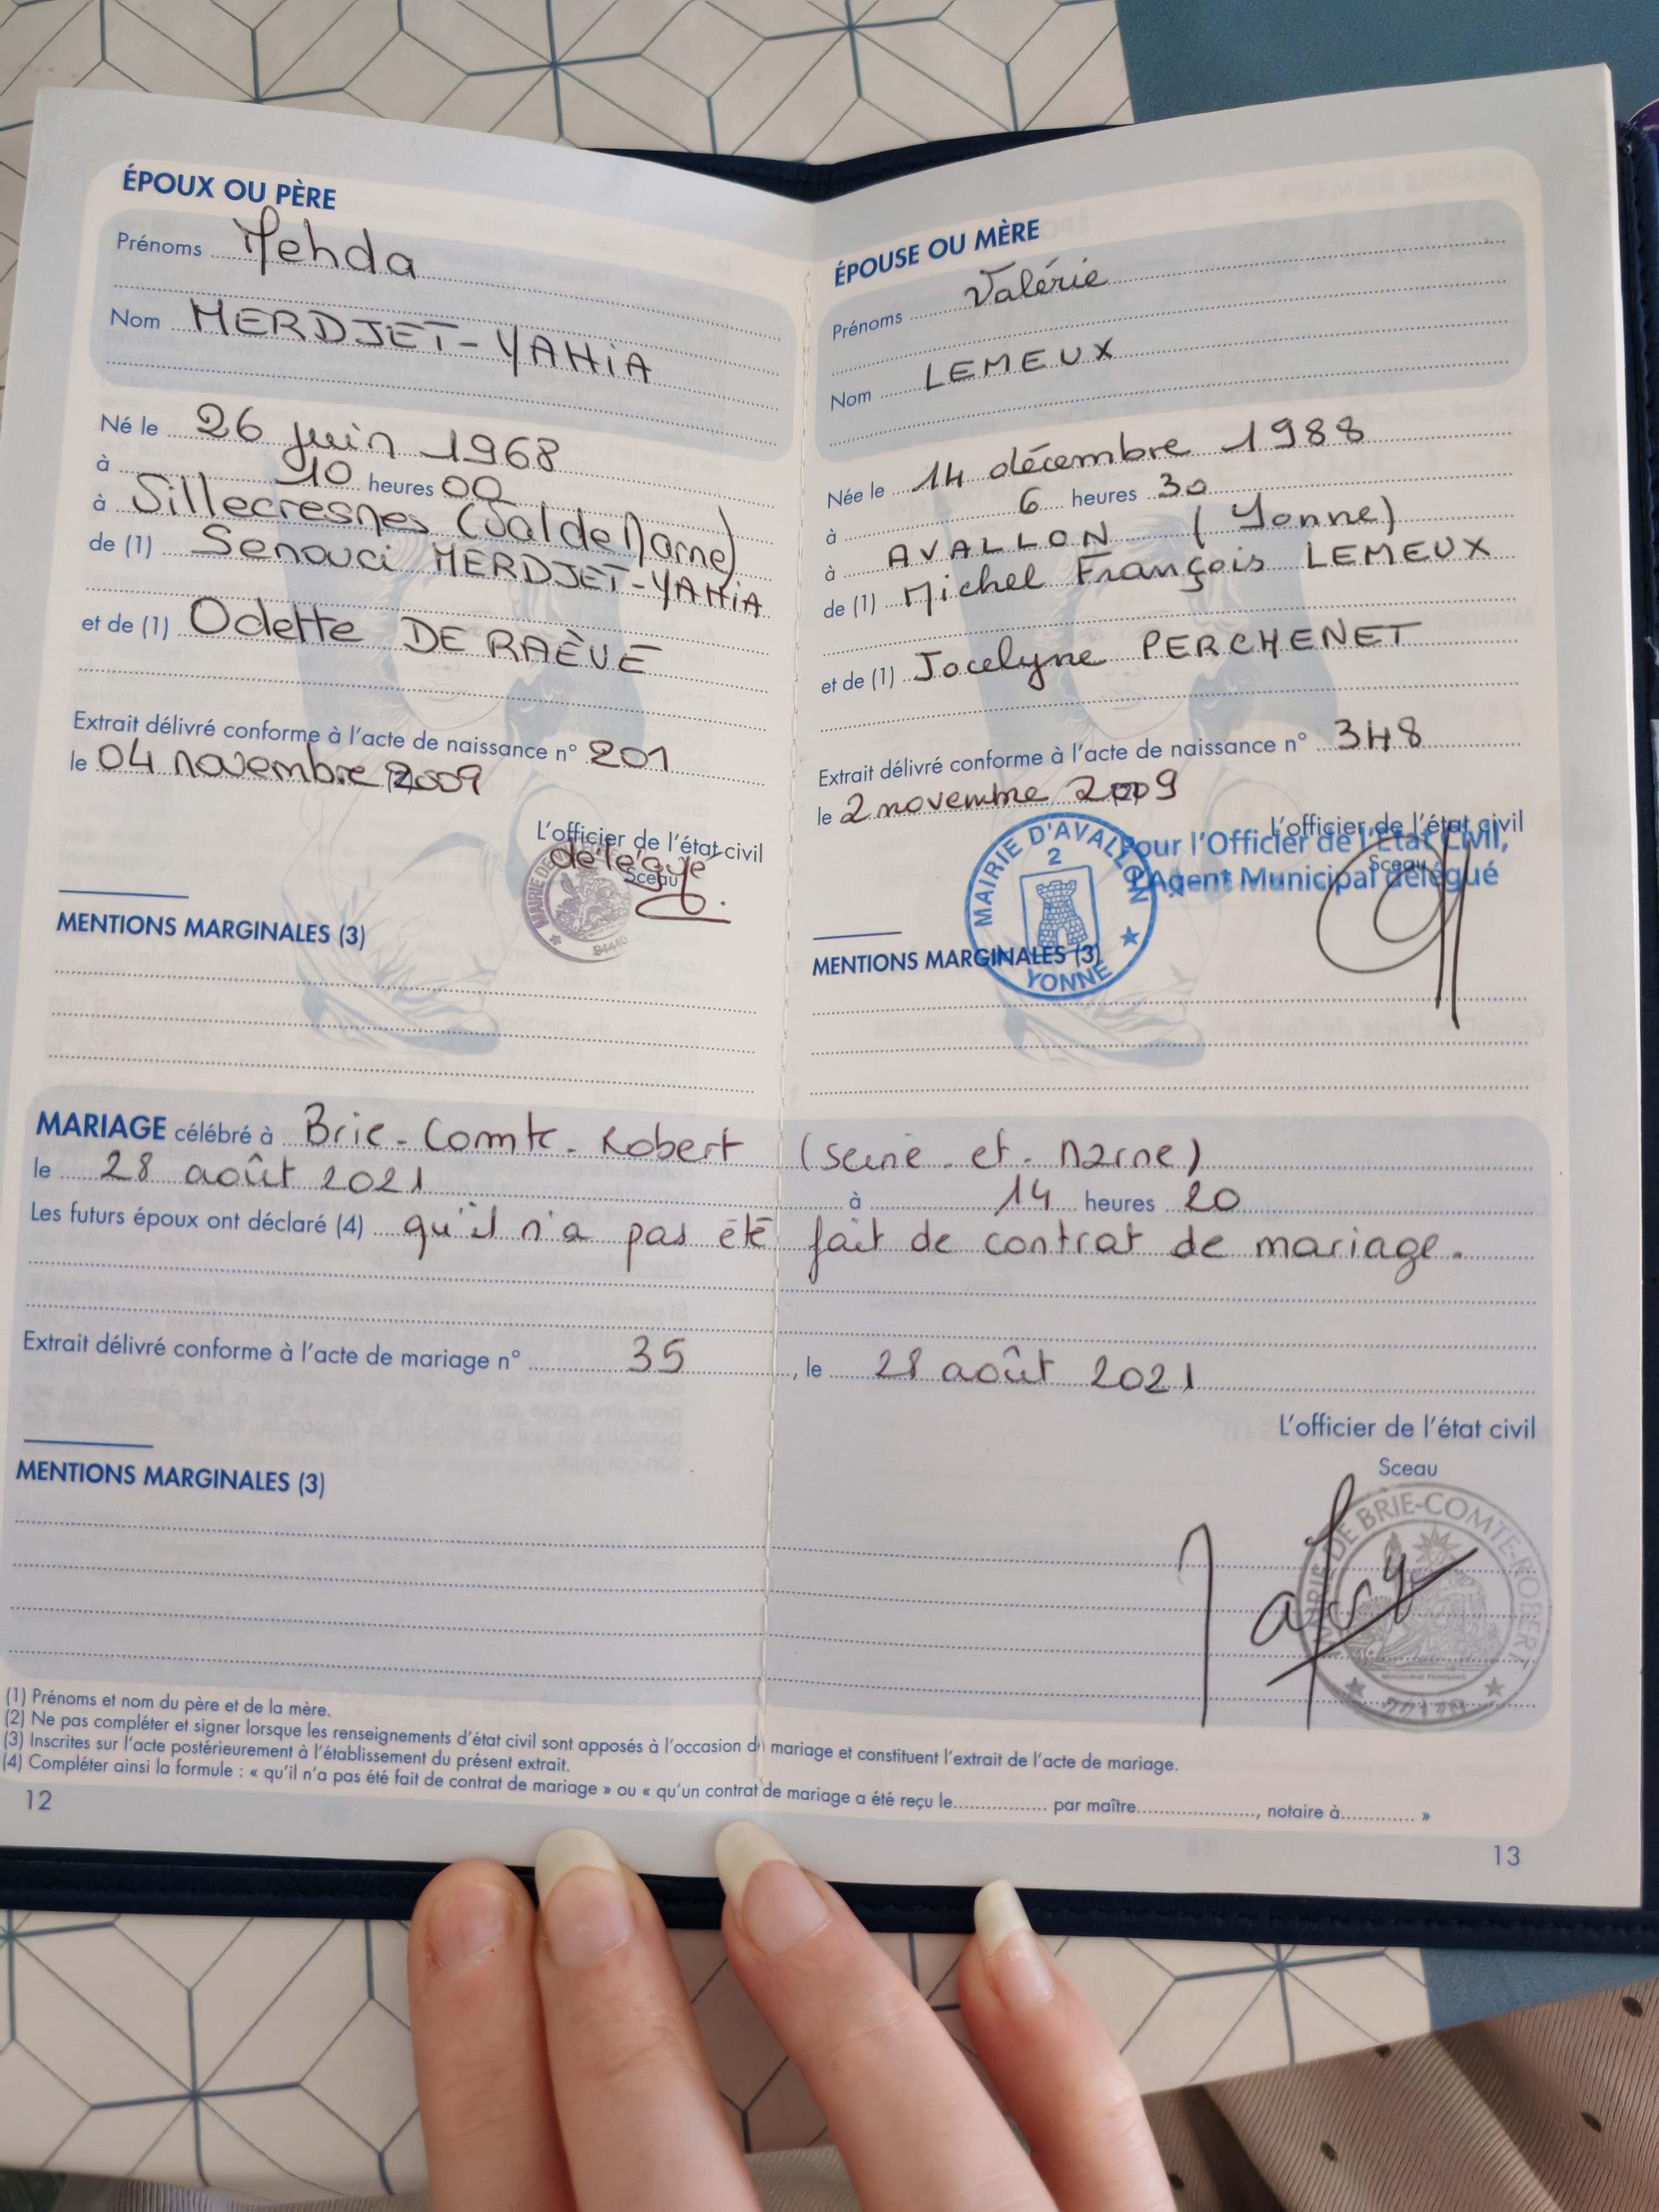 ÉPOUX OU PÈRE
Prénoms Mehda
Nom MERDJET-YAHIA
Né le 26 juin 1968
à 10 heures 00
à Villecresnes (Val de Marne)
de (1) Senouci MERDJET-YAHIA
et de (1) Odette DE RAÈVE
Extrait délivré conforme à l'acte de naissance n° 201
le 04 novembre 2009
L'officier de l'état civil
délégué
Sceau
94440
MENTIONS MARGINALES (3)
ÉPOUSE OU MÈRE
Prénoms Valérie
Nom LEMEUX
Née le 14 décembre 1988
à 6 heures 30
à AVALLON (Yonne)
de (1) Michel François LEMEUX
et de (1) Jocelyne PERCHENET
Extrait délivré conforme à l'acte de naissance n° 348
le 2 novembre 2009
L'officier de l'état civil
Sceau
Pour l'Officier de l'Etat Civil,
L'Agent Municipal délégué
MAIRIE D'AVALLON
2
YONNE
MENTIONS MARGINALES (3)
MARIAGE célébré à Brie-Comte-Robert (Seine-et-Marne)
le 28 août 2021 à 14 heures 20
Les futurs époux ont déclaré (4) qu'il n'a pas été fait de contrat de mariage.
Extrait délivré conforme à l'acte de mariage n° 35, le 28 août 2021
L'officier de l'état civil
Sceau
MAIRIE DE BRIE-COMTE-ROBERT
77170
MENTIONS MARGINALES (3)
(1) Prénoms et nom du père et de la mère.
(2) Ne pas compléter et signer lorsque les renseignements d'état civil sont apposés à l'occasion du mariage et constituent l'extrait de l'acte de mariage.
(3) Inscrites sur l'acte postérieurement à l'établissement du présent extrait.
(4) Compléter ainsi la formule : « qu'il n'a pas été fait de contrat de mariage » ou « qu'un contrat de mariage a été reçu le................ par maître......................, notaire à............ »
12
13